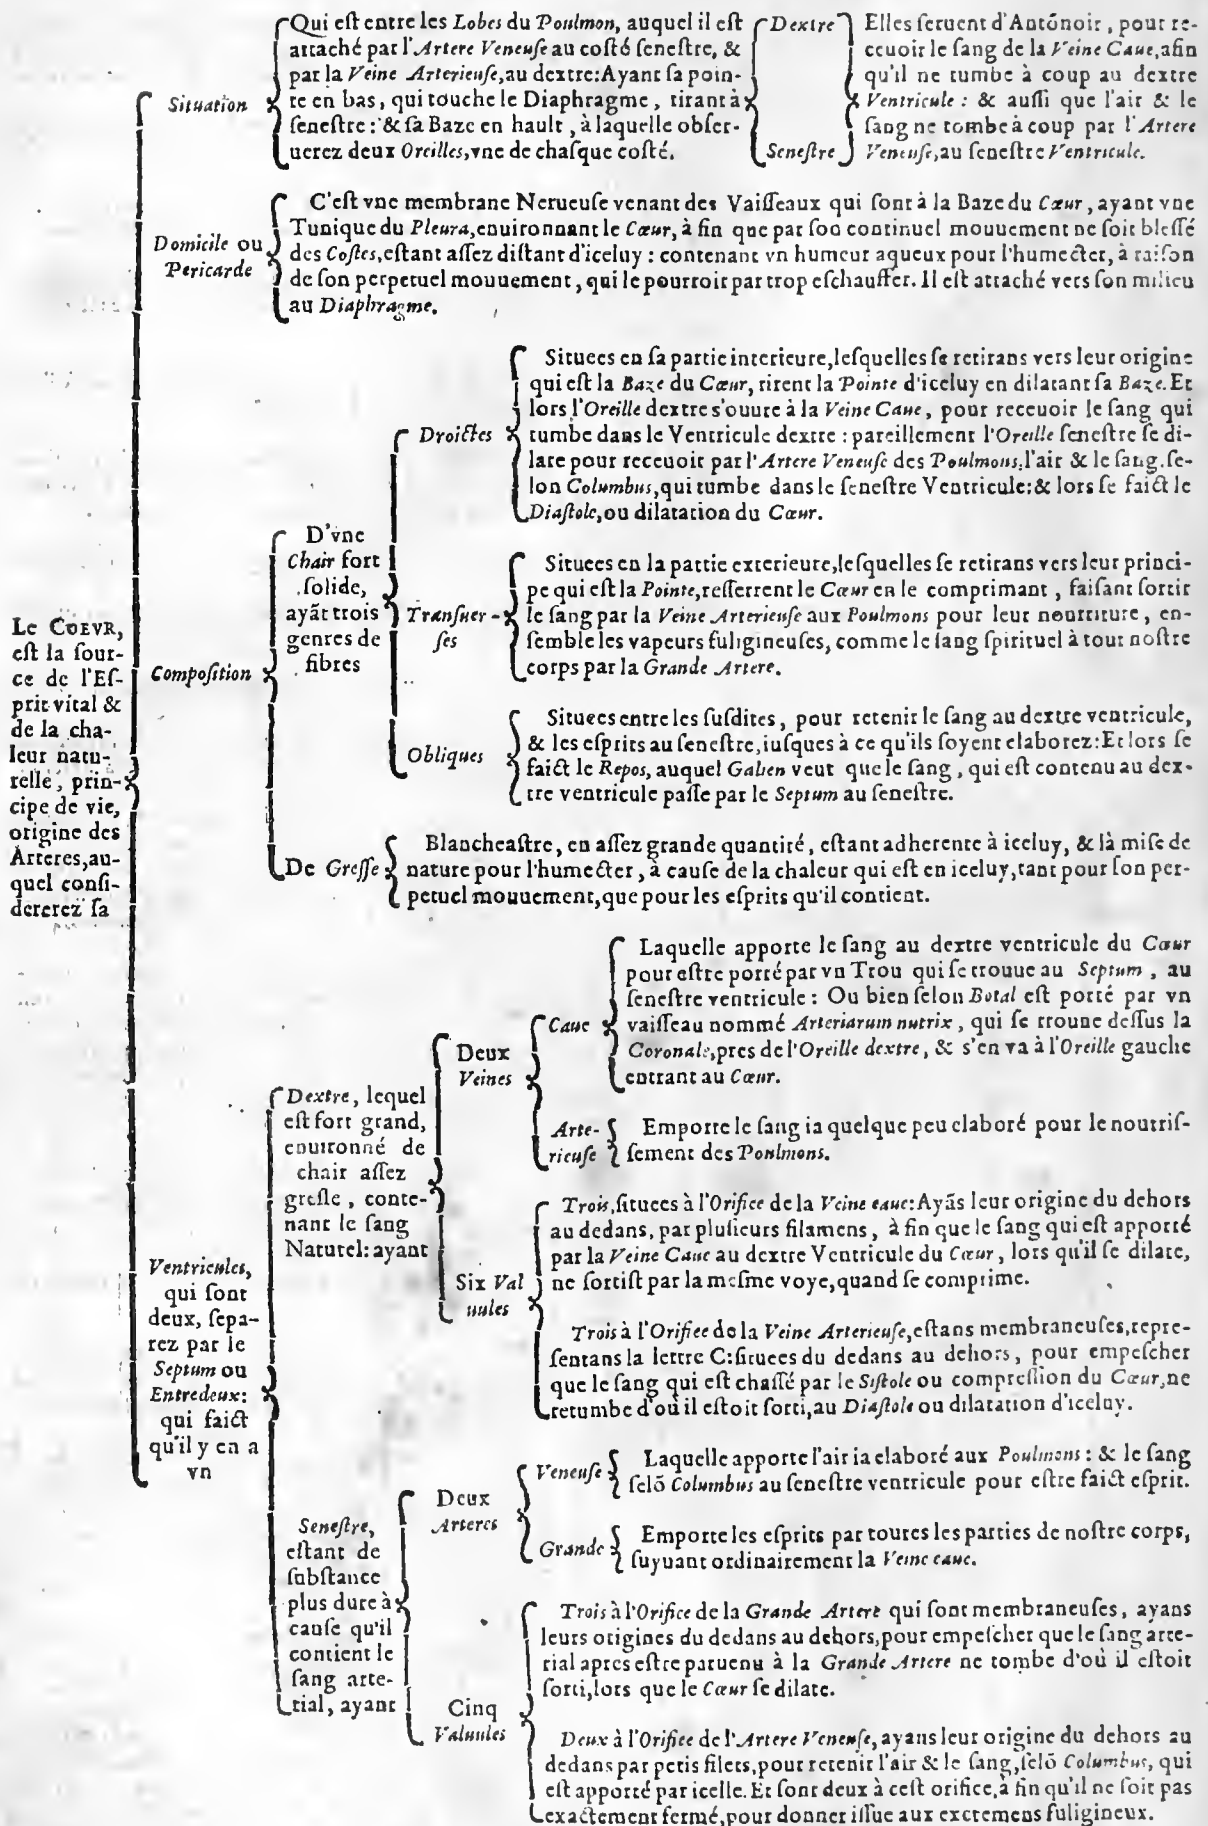 Le COEVR,
eſt la ſour-
ce de l'Eſ-
prit vital &
de la cha-
leur natu-
relle, prin-
cipe de vie,
origine des
Arteres, au-
quel conſi-
dererez ſa
Situation
Qui eſt entre les Lobes du Poulmon, auquel il eſt
attaché par l'Artere Veneuſe au coſté ſeneſtre, &
par la Veine Arterieuſe, au dextre: Ayant ſa poin-
te en bas, qui touche le Diaphragme, tirant à
ſeneſtre: & ſa Baze en hault, à laquelle obſer-
uerez deux Oreilles, vne de chaſque coſté.
Dextre
Seneſtre
Elles ſeruent d'Antōnoir, pour re-
ceuoir le ſang de la Veine Caue, afin
qu'il ne tumbe à coup au dextre
Ventricule: & auſſi que l'air & le
ſang ne tombe à coup par l'Artere
Veneuſe, au ſeneſtre Ventricule.
Domicile ou
Pericarde
C'eſt vne membrane Nerueuſe venant des Vaiſſeaux qui ſont à la Baze du Cœur, ayant vne
Tunique du Pleura, enuironnant le Cœur, à fin que par ſon continuel mouuement ne ſoit bleſſé
des Coſtes, eſtant aſſez diſtant d'iceluy: contenant vn humeur aqueux pour l'humecter, à raiſon
de ſon perpetuel mouuement, qui le pourroit par trop eſchauffer. Il eſt attaché vers ſon milieu
au Diaphragme.
Compoſition
D'vne
Chair fort
ſolide,
ayāt trois
genres de
fibres
Droictes
Situees en ſa partie interieure, leſquelles ſe retirans vers leur origine
qui eſt la Baze du Cœur, tirent la Pointe d'iceluy en dilatant ſa Baze. Et
lors l'Oreille dextre s'ouure à la Veine Caue, pour receuoir le ſang qui
tumbe dans le Ventricule dextre: pareillement l'Oreille ſeneſtre ſe di-
late pour receuoir par l'Artere Veneuſe des Poulmons, l'air & le ſang, ſe-
lon Columbus, qui tumbe dans le ſeneſtre Ventricule: & lors ſe faict le
Diaſtole, ou dilatation du Cœur.
Tranſuer-
ſes
Situees en la partie exterieure, leſquelles ſe retirans vers leur princi-
pe qui eſt la Pointe, reſſerrent le Cœur en le comprimant, faiſant ſortir
le ſang par la Veine Arterieuſe aux Poulmons pour leur nourriture, en-
ſemble les vapeurs fuligineuſes, comme le ſang ſpirituel à tout noſtre
corps par la Grande Artere.
Obliques
Situees entre les ſuſdites, pour retenir le ſang au dextre ventricule,
& les eſprits au ſeneſtre, iuſques à ce qu'ils ſoyent elaborez: Et lors ſe
faict le Repos, auquel Galien veut que le ſang, qui eſt contenu au dex-
tre ventricule paſſe par le Septum au ſeneſtre.
De Greſſe
Blancheaſtre, en aſſez grande quantité, eſtant adherente à iceluy, & là miſe de
nature pour l'humecter, à cauſe de la chaleur qui eſt en iceluy, tant pour ſon per-
petuel mouuement, que pour les eſprits qu'il contient.
Ventricules,
qui ſont
deux, ſepa-
rez par le
Septum ou
Entredeux:
qui faict
qu'il y en a
vn
Dextre, lequel
eſt fort grand,
enuironné de
chair aſſez
greſle, conte-
nant le ſang
Naturel: ayant
Deux
Veines
Caue
Laquelle apporte le ſang au dextre ventricule du Cœur
pour eſtre porté par vn Trou qui ſe trouue au Septum, au
ſeneſtre ventricule: Ou bien ſelon Botal eſt porté par vn
vaiſſeau nommé Arteriarum nutrix, qui ſe trouue deſſus la
Coronale, pres de l'Oreille dextre, & s'en va à l'Oreille gauche
entrant au Cœur.
Arte-
rieuſe
Emporte le ſang ia quelque peu elaboré pour le nourriſ-
ſement des Poulmons.
Six Val
uules
Trois, ſituees à l'Orifice de la Veine caue: Ayās leur origine du dehors
au dedans, par pluſieurs filamens, à fin que le ſang qui eſt apporté
par la Veine Caue au dextre Ventricule du Cœur, lors qu'il ſe dilate,
ne ſortiſt par la meſme voye, quand ſe comprime.
Trois à l'Orifice de la Veine Arterieuſe, eſtans membraneuſes, repre-
ſentans la lettre C: ſituees du dedans au dehors, pour empeſcher
que le ſang qui eſt chaſſé par le Siſtole ou compreſſion du Cœur, ne
retumbe d'où il eſtoit ſorti, au Diaſtole ou dilatation d'iceluy.
Seneſtre,
eſtant de
ſubſtance
plus dure à
cauſe qu'il
contient le
ſang arte-
rial, ayant
Deux
Arteres
Veneuſe
Laquelle apporte l'air ia elaboré aux Poulmons: & le ſang
ſelō Columbus au ſeneſtre ventricule pour eſtre faict eſprit.
Grande
Emporte les eſprits par toutes les parties de noſtre corps,
ſuyuant ordinairement la Veine caue.
Cinq
Valuules
Trois à l'Orifice de la Grande Artere qui ſont membraneuſes, ayans
leurs origines du dedans au dehors, pour empeſcher que le ſang arte-
rial apres eſtre paruenu à la Grande Artere ne tombe d'où il eſtoit
ſorti, lors que le Cœur ſe dilate.
Deux à l'Orifice de l'Artere Veneuſe, ayans leur origine du dehors au
dedans par petis filets, pour retenir l'air & le ſang, ſelō Columbus, qui
eſt apporté par icelle. Et ſont deux à ceſt orifice, à fin qu'il ne ſoit pas
exactement fermé, pour donner iſſue aux excremens fuligineux.